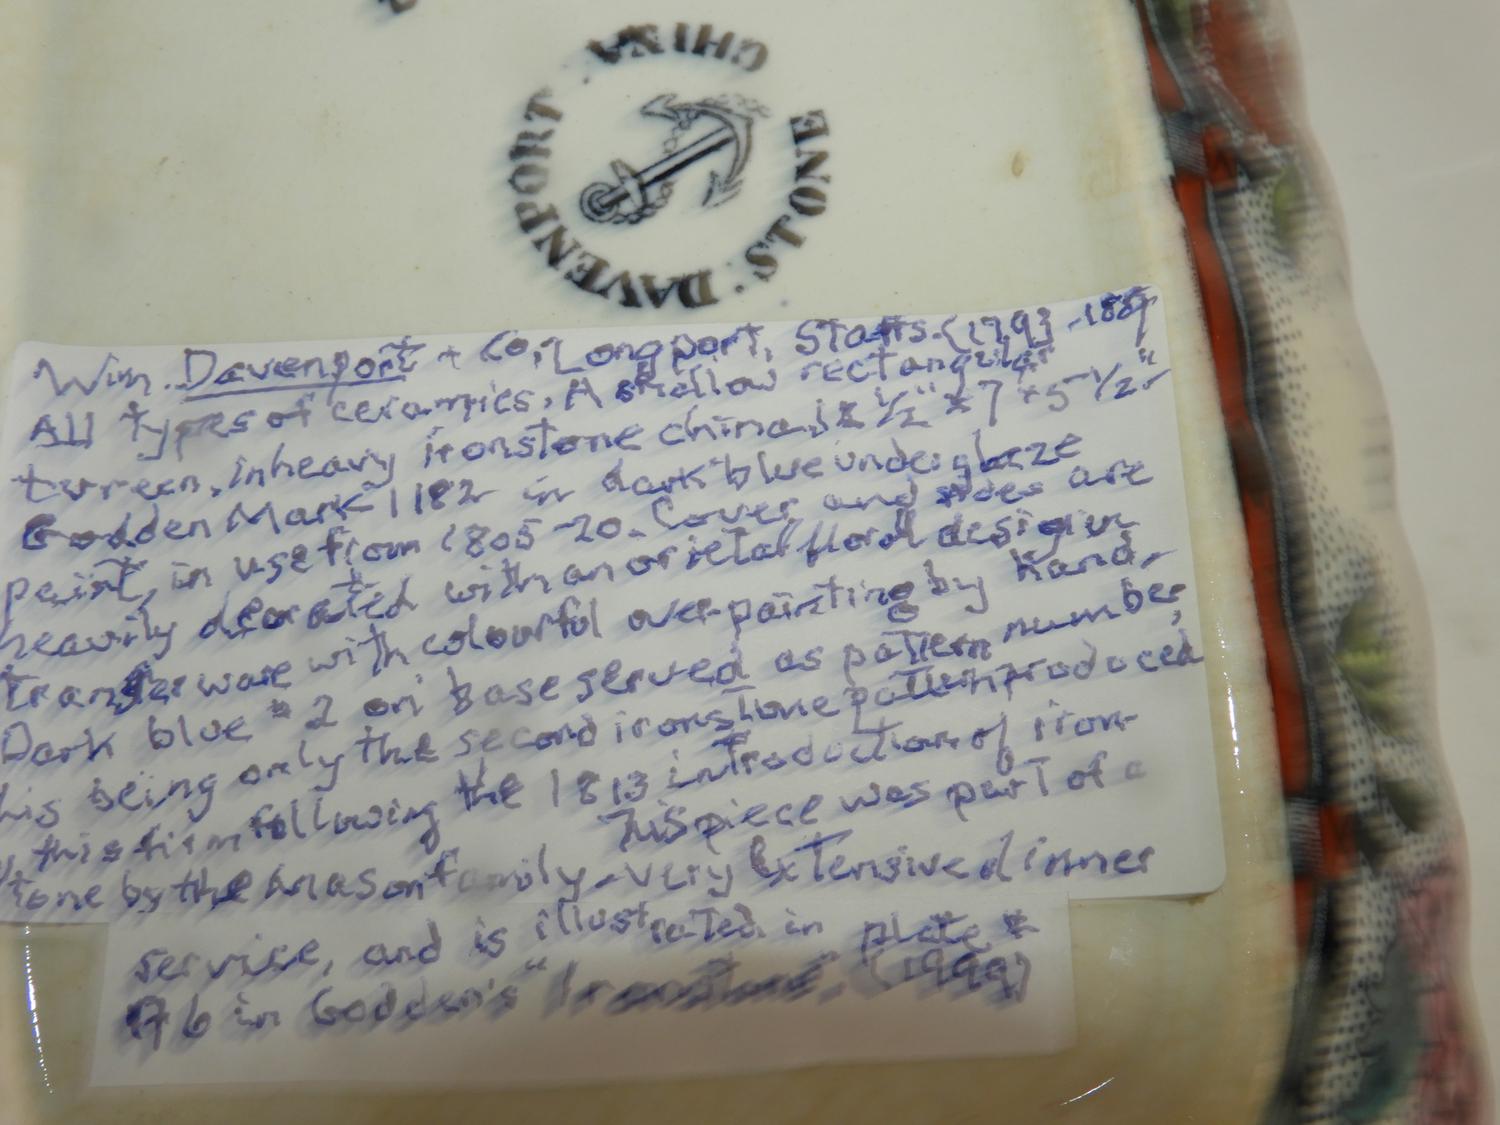 DAVENPORT · STONE CHINA
Wm. Davenport + Co., Longport, Staffs. (179
All types of ceramics. A shallow rectangular
tureen, in heavy ironstone china, 1/2" x 7 x 5 1/2"
Godden Mark 1182 in dark blue underglaze
paint, in use from 1805-20. Cover and sides are
heavily with an floral design in
transfer ware with colourful over-painting by hand.
Dark blue # 2 on base served as pattern number,
his being only the second ironstone pattern produced
this firm following the 1813 introduction of iron-
tone by the Mason family. This piece was part of a
very extensive dinner
service, and is illustrated in plate #
in Godden's "Ironstone" (1999)